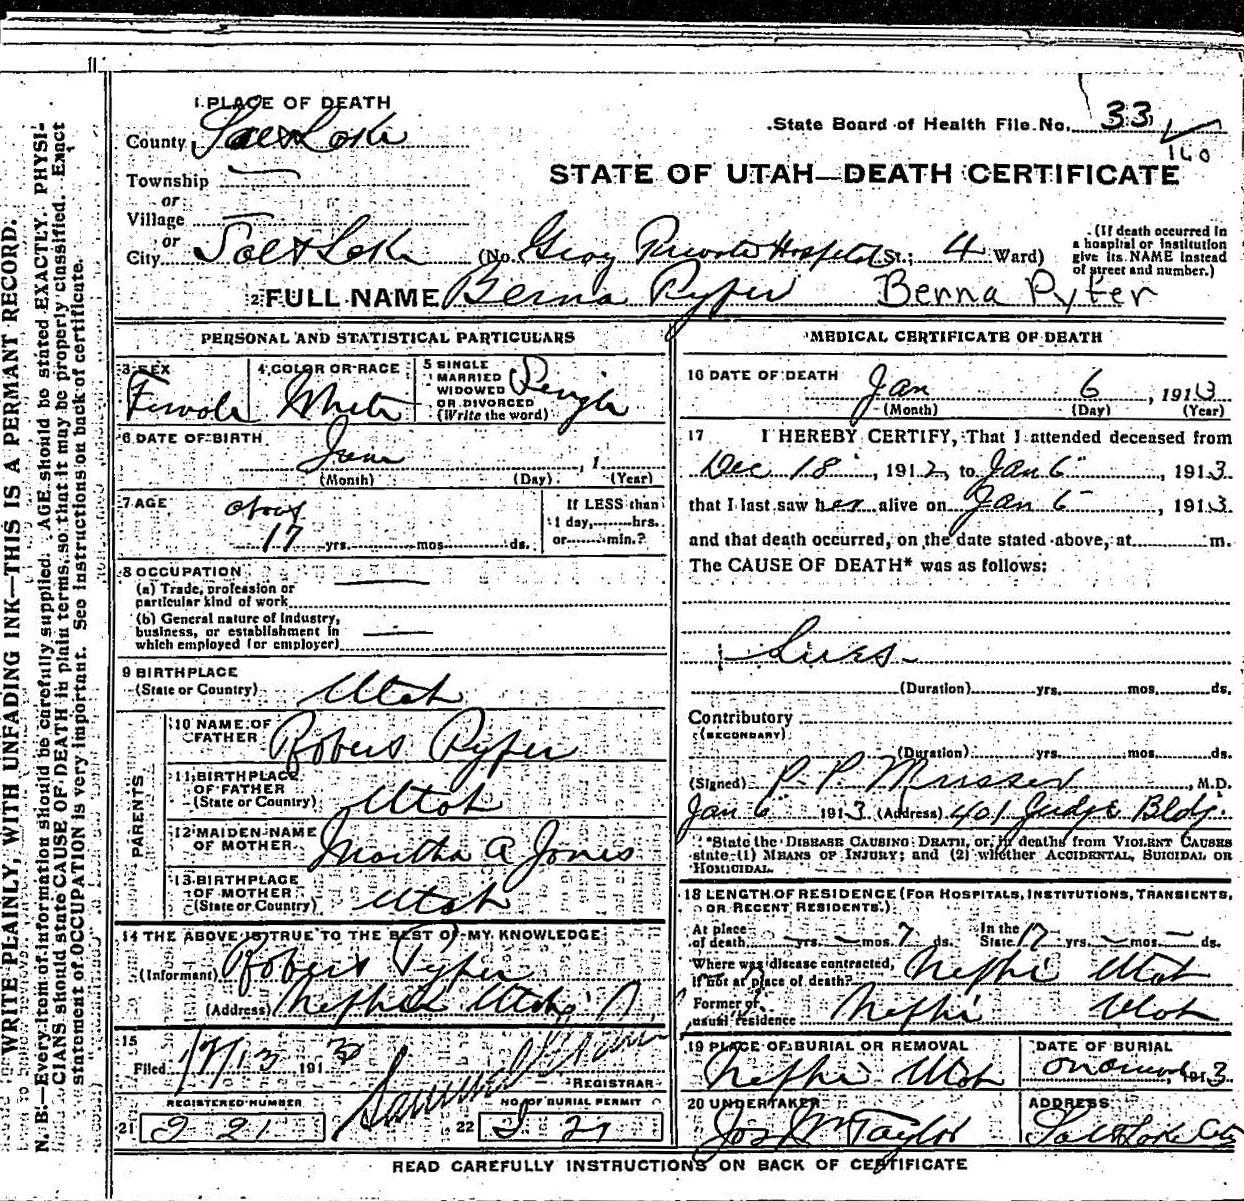 WRITE PLAINLY, WITH UNFADING INK—THIS IS A PERMANT RECORD.
N. B.—Every item of information should be carefully supplied. AGE should be stated EXACTLY. PHYSI-
CIANS should state CAUSE OF DEATH in plain terms, so that it may be properly classified. Exact
statement of OCCUPATION is very important. See instructions on back of certificate.
1 PLACE OF DEATH
County Salt Lake
State Board of Health File No. 33
160
STATE OF UTAH—DEATH CERTIFICATE
Township
or
Village
or
City Salt Lake (No. Private Hospital St.; 4 Ward)
(If death occurred in
a hospital or institution
give its NAME instead
of street and number.)
2 FULL NAME Berna Pyper Berna Pyfer
PERSONAL AND STATISTICAL PARTICULARS
3 SEX Female
4 COLOR OR RACE White
5 SINGLE
MARRIED
WIDOWED
OR DIVORCED
(Write the word) Single
6 DATE OF BIRTH
June , 1
(Month) (Day) (Year)
7 AGE about
17 yrs. mos. ds.
If LESS than
1 day, hrs.
or min.?
8 OCCUPATION
(a) Trade, profession or
particular kind of work
(b) General nature of Industry,
business, or establishment in
which employed (or employer)
9 BIRTHPLACE
(State or Country) Utah
PARENTS
10 NAME OF
FATHER Robert Pyper
11 BIRTHPLACE
OF FATHER
(State or Country) Utah
12 MAIDEN NAME
OF MOTHER Martha A Jones
13 BIRTHPLACE
OF MOTHER
(State or Country) Utah
14 THE ABOVE IS TRUE TO THE BEST OF MY KNOWLEDGE
(Informant) Robert Pyper
(Address) Nephi Utah
15
Filed 1/7/13 191
REGISTRAR
REGISTERED NUMBER
21 221
NO. OF BURIAL PERMIT
22 221
MEDICAL CERTIFICATE OF DEATH
16 DATE OF DEATH
Jan 6, 1913
(Month) (Day) (Year)
17 I HEREBY CERTIFY, That I attended deceased from
Dec 18, 1912, to Jan 6, 1913
that I last saw her alive on Jan 6, 1913
and that death occurred, on the date stated above, at m.
The CAUSE OF DEATH* was as follows:
Lues
(Duration) yrs. mos. ds.
Contributory
(SECONDARY)
(Duration) yrs. mos. ds.
(Signed) P. P. Musser, M.D.
Jan 6 1913 (Address) 401 Judge Bldg.
*State the DISEASE CAUSING DEATH, or, in deaths from VIOLENT CAUSES
state (1) MEANS OF INJURY; and (2) whether ACCIDENTAL, SUICIDAL OR
HOMICIDAL.
18 LENGTH OF RESIDENCE (FOR HOSPITALS, INSTITUTIONS, TRANSIENTS,
OR RECENT RESIDENTS.)
At place
of death — yrs. — mos. 7 ds. In the
State 17 yrs. — mos. — ds.
Where was disease contracted,
if not at place of death? Nephi Utah
Former or
usual residence Nephi Utah
19 PLACE OF BURIAL OR REMOVAL
Nephi Utah
DATE OF BURIAL
1913
20 UNDERTAKER
Jos Wm Taylor
ADDRESS
Salt Lake City
READ CAREFULLY INSTRUCTIONS ON BACK OF CERTIFICATE